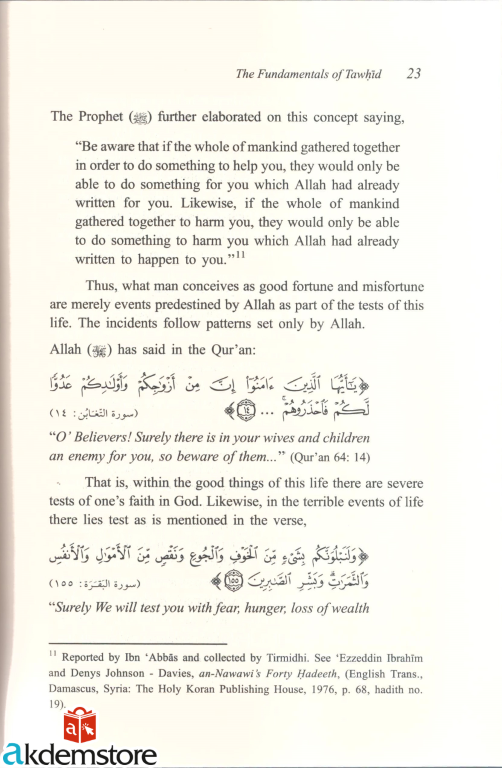 The Fundamentals of Tawḥīd 23
The Prophet (ﷺ) further elaborated on this concept saying,
“Be aware that if the whole of mankind gathered together
in order to do something to help you, they would only be
able to do something for you which Allah had already
written for you. Likewise, if the whole of mankind
gathered together to harm you, they would only be able
to do something to harm you which Allah had already
written to happen to you.”11
Thus, what man conceives as good fortune and misfortune
are merely events predestined by Allah as part of the tests of this
life. The incidents follow patterns set only by Allah.
Allah (ﷻ) has said in the Qur’an:
﴿يَٰٓأَيُّهَا ٱلَّذِينَ ءَامَنُوٓا۟ إِنَّ مِنْ أَزْوَٰجِكُمْ وَأَوْلَٰدِكُمْ عَدُوًّا
لَّكُمْ فَٱحْذَرُوهُمْ ۚ ... ١٤﴾ (سورة التَّغَابُن: ١٤)
“O’ Believers! Surely there is in your wives and children
an enemy for you, so beware of them...” (Qur’an 64: 14)
That is, within the good things of this life there are severe
tests of one’s faith in God. Likewise, in the terrible events of life
there lies test as is mentioned in the verse,
﴿وَلَنَبْلُوَنَّكُم بِشَىْءٍ مِّنَ ٱلْخَوْفِ وَٱلْجُوعِ وَنَقْصٍ مِّنَ ٱلْأَمْوَٰلِ وَٱلْأَنفُسِ
وَٱلثَّمَرَٰتِ ۗ وَبَشِّرِ ٱلصَّٰبِرِينَ ١٥٥﴾ (سورة البَقَرَة: ١٥٥)
“Surely We will test you with fear, hunger, loss of wealth
11 Reported by Ibn ‘Abbās and collected by Tirmidhi. See ‘Ezzeddin Ibrahīm
and Denys Johnson - Davies, an-Nawawi’s Forty Ḥadeeth, (English Trans.,
Damascus, Syria: The Holy Koran Publishing House, 1976, p. 68, hadith no.
19).
a
akdemstore